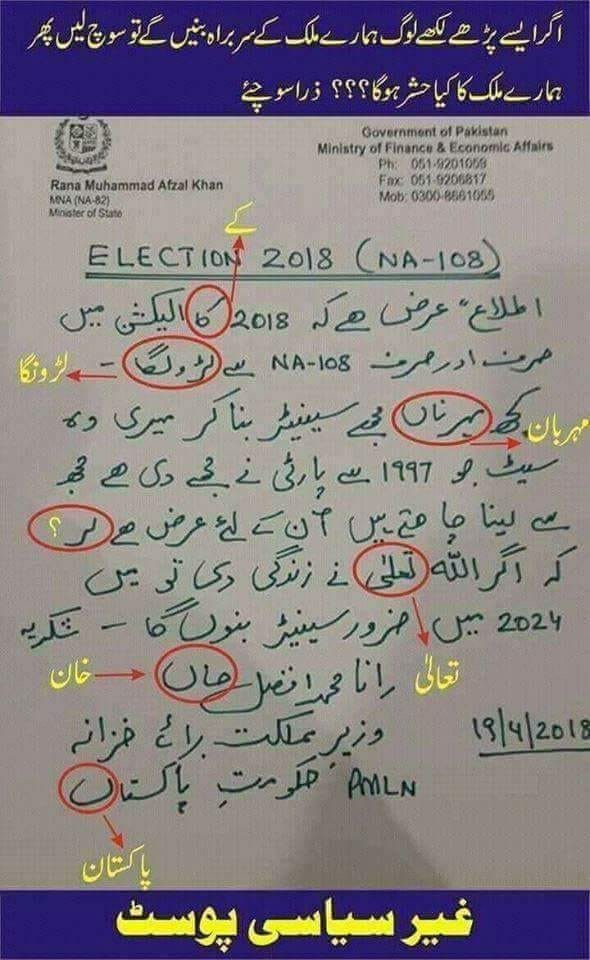 اگر ایسے پڑھے لکھے لوگ ہمارے ملک کے سربراہ بنیں گے تو سوچ لیں پھر
ہمارے ملک کا کیا حشر ہوگا؟؟؟ ذرا سوچئے
Government of Pakistan
Ministry of Finance & Economic Affairs
Ph: 051-9201059
Fax: 051-9206817
Mob: 0300-8661055
Rana Muhammad Afzal Khan
MNA (NA-82)
Minister of State
کے
ELECTION 2018 (NA-108)
اطلاع" عرض ھے کہ 2018 کا الیکشن میں
صرف اور صرف NA-108 سے لڑولگا -
لڑونگا
کچھ مہرناں مجھے سینیٹر بنا کر میری وہ
مہربان
سیٹ جو 1997 سے پارٹی نے مجھے دی ھے مجھ
سے لینا چاھتے ہیں اُن کے لئے عرض ھے لر ؟
کہ اگر اللہ تعلیٰ نے زندگی دی تو میں
2024 میں ضرور سینیٹر بنوں گا - شکریہ
تعالیٰ
رانا محمد افضل حاں
خان
وزیرِ مملکت برائے خزانہ
19/4/2018
حکومتِ پاکستاں PMLN
پاکستان
غیر سیاسی پوسٹ